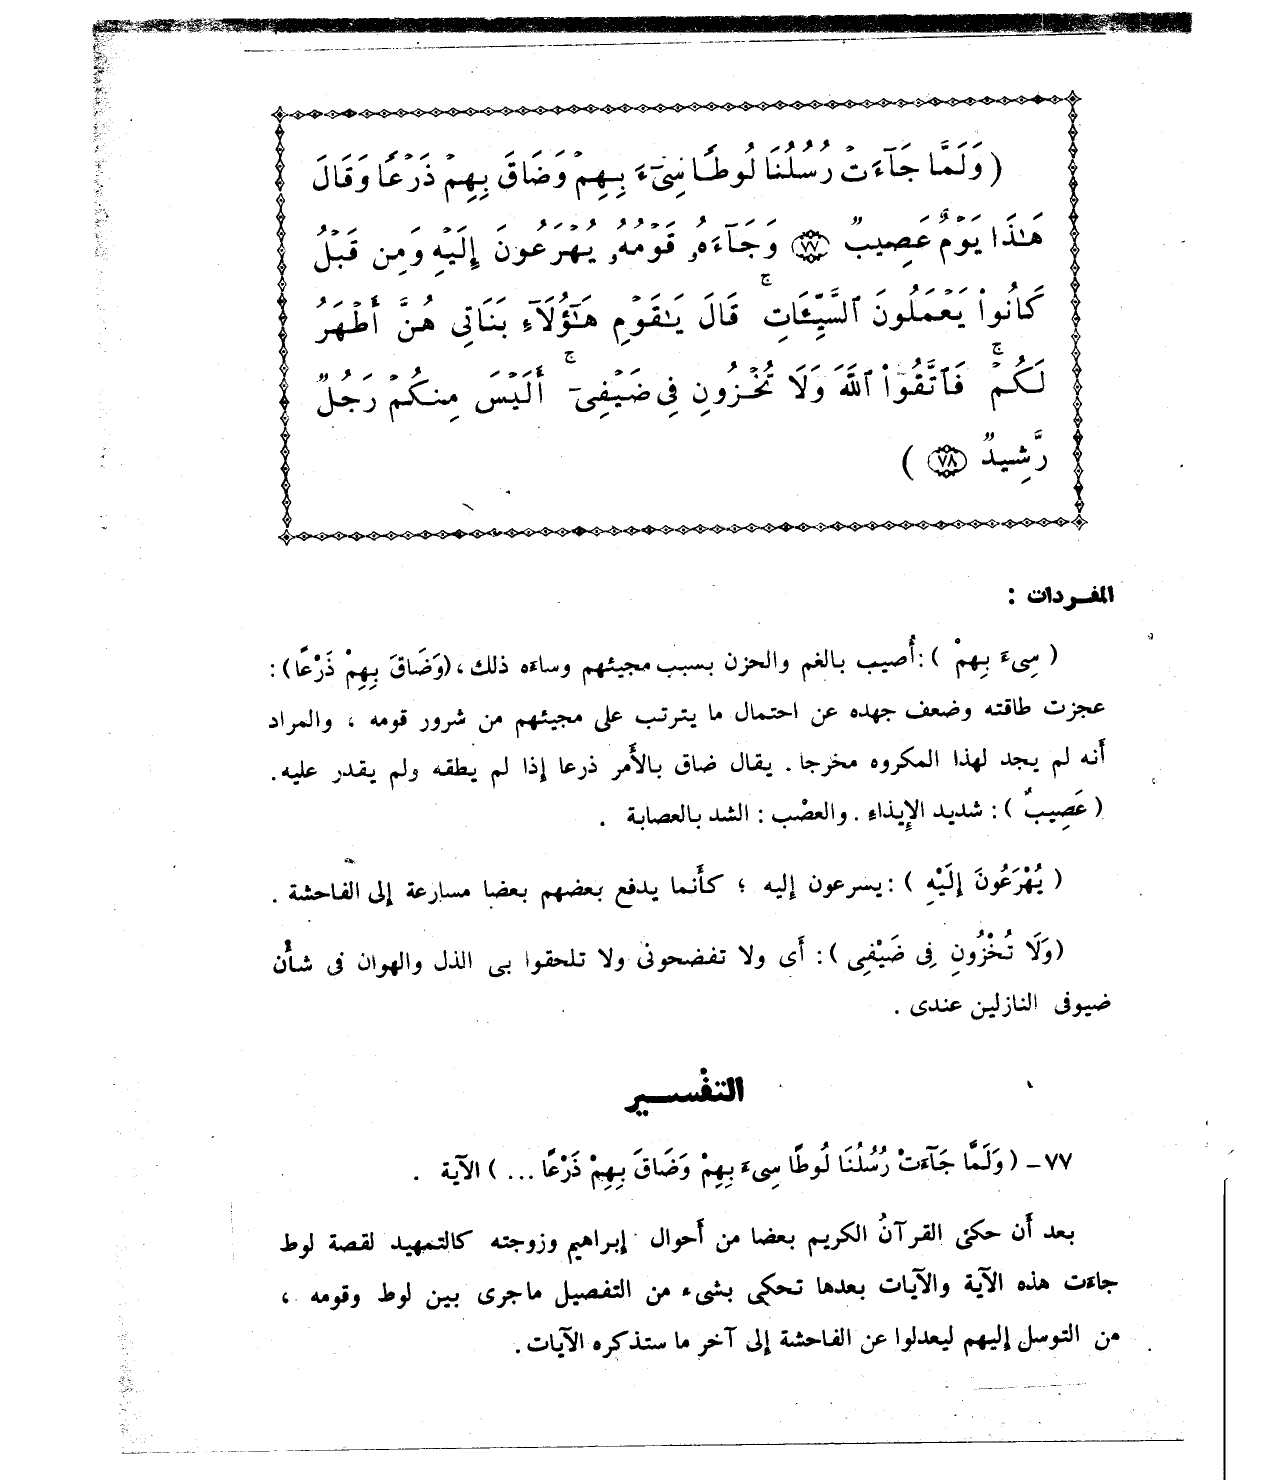 (وَلَمَّا جَآءَتْ رُسُلُنَا لُوطًا سِىٓءَ بِهِمْ وَضَاقَ بِهِمْ ذَرْعًا وَقَالَ
هَٰذَا يَوْمٌ عَصِيبٌ ٧٧ وَجَآءَهُۥ قَوْمُهُۥ يُهْرَعُونَ إِلَيْهِ وَمِن قَبْلُ
كَانُوا۟ يَعْمَلُونَ ٱلسَّيِّـَٔاتِ ۚ قَالَ يَٰقَوْمِ هَٰٓؤُلَآءِ بَنَاتِى هُنَّ أَطْهَرُ
لَكُمْ ۚ فَٱتَّقُوا۟ ٱللَّهَ وَلَا تُخْزُونِ فِى ضَيْفِىٓ ۚ أَلَيْسَ مِنكُمْ رَجُلٌ
رَّشِيدٌ ٧٨ )
المفـردات :
( سِىءَ بِهِمْ ) : أُصيب بالغم والحزن بسبب مجيئهم وساءه ذلك ، (وَضَاقَ بِهِمْ ذَرْعًا) :
عجزت طاقته وضعف جهده عن احتمال ما يترتب على مجيئهم من شرور قومه ، والمراد
أنه لم يجد لهذا المكروه مخرجا . يقال ضاق بالأمر ذرعا إذا لم يطقه ولم يقدر عليه .
( عَصِيبٌ ) : شديد الإيذاء . والعصْب : الشد بالعصابة .
( يُهْرَعُونَ إِلَيْهِ ) : يسرعون إليه ؛ كأنما يدفع بعضهم بعضا مسارعة إلى الفاحشة .
(وَلَا تُخْزُونِ فِى ضَيْفِى ) : أى ولا تفضحونى ولا تلحقوا بى الذل والهوان فى شأن
ضيوفى النازلين عندى .
التفْسـير
٧٧ – ( وَلَمَّا جَآءَتْ رُسُلُنَا لُوطًا سِىءَ بِهِمْ وَضَاقَ بِهِمْ ذَرْعًا ... ) الآية .
بعد أن حكى القرآنُ الكريم بعضا من أحوال إبراهيم وزوجته كالتمهيد لقصة لوط
جاءت هذه الآية والآيات بعدها تحكى بشىء من التفصيل ماجرى بين لوط وقومه ،
من التوسل إليهم ليعدلوا عن الفاحشة إلى آخر ما ستذكره الآيات .